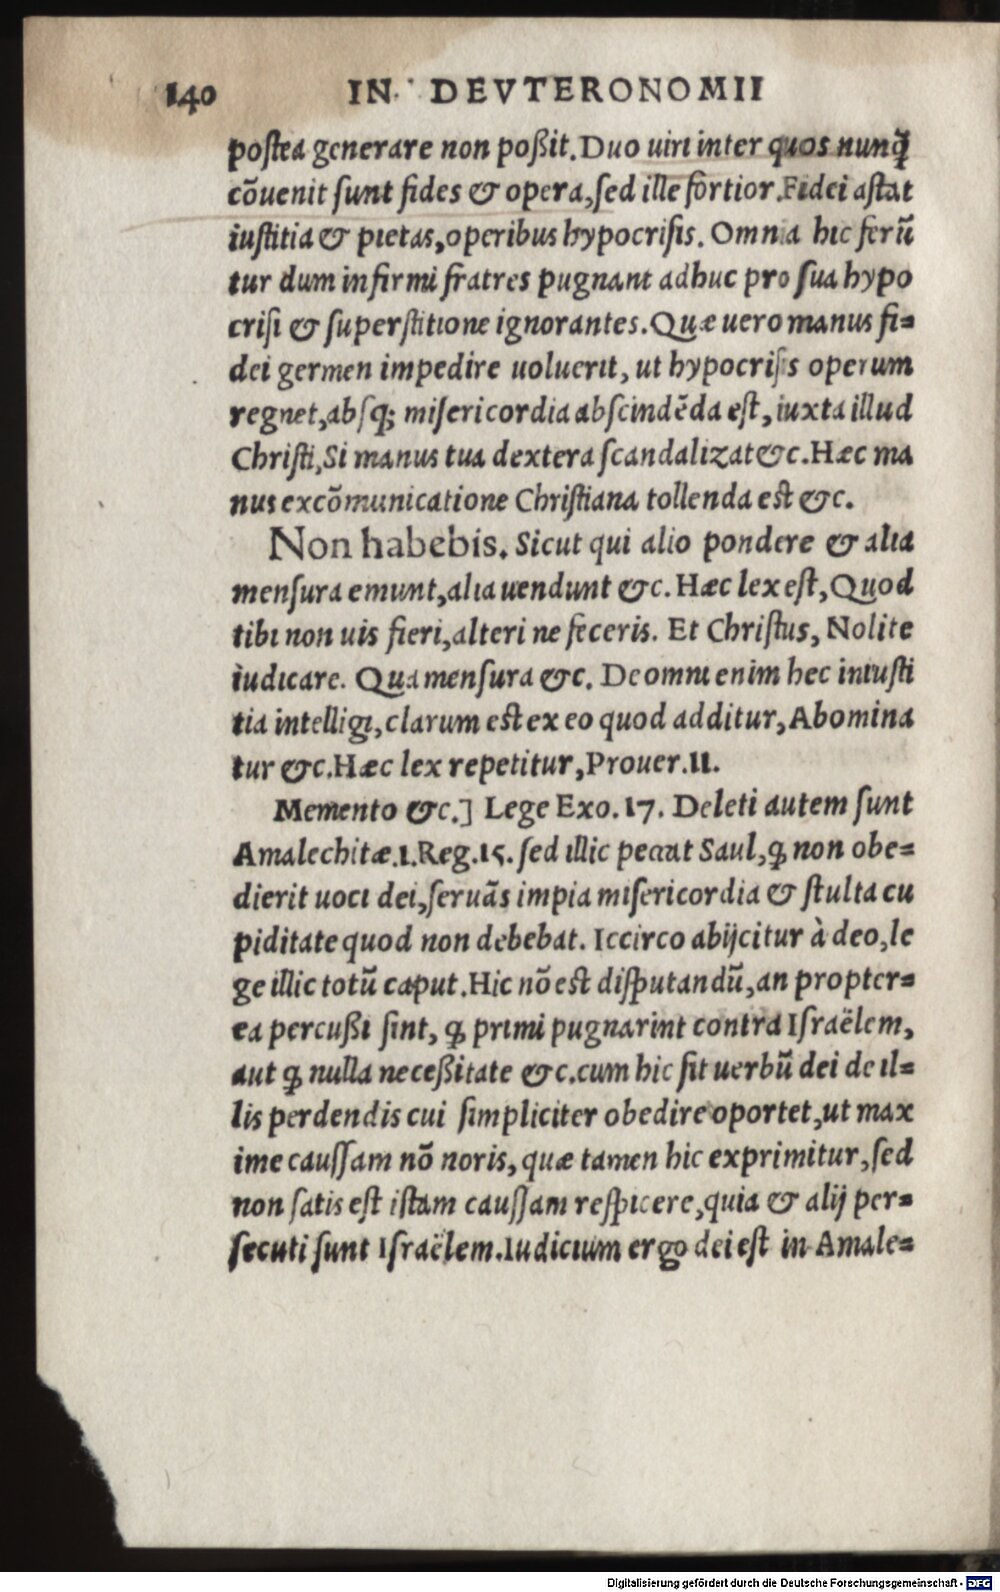 140 IN DEVTERONOMII
postea generare non poßit. Duo uiri inter quos nunq̃
cõuenit sunt fides & opera, sed ille fortior. Fidei astat
iustitia & pietas, operibus hypocrisis. Omnia hic ferũ
tur dum infirmi fratres pugnant adhuc pro sua hypo
crisi & superstitione ignorantes. Quæ uero manus fi=
dei germen impedire uoluerit, ut hypocrisis operum
regnet, absq; misericordia abscindẽda est, iuxta illud
Christi, Si manus tua dextera scandalizat &c. Hæc ma
nus excõmunicatione Christiana tollenda est &c.
Non habebis. Sicut qui alio pondere & alia
mensura emunt, alia uendunt &c. Hæc lex est, Quod
tibi non uis fieri, alteri ne feceris. Et Christus, Nolite
iudicare. Qua mensura &c. De omni enim hec iniusti
tia intelligi, clarum est ex eo quod additur, Abomina
tur &c. Hæc lex repetitur, Prouer. 11.
Memento &c.] Lege Exo. 17. Deleti autem sunt
Amalechitæ. 1. Reg. 15. sed illic peccat Saul, ꝙ non obe=
dierit uoci dei, seruãs impia misericordia & stulta cu
piditate quod non debebat. Iccirco abijcitur à deo, le
ge illic totũ caput. Hic nõ est disputandũ, an propter=
ea percußi sint, ꝙ primi pugnarint contra Israëlem,
aut ꝙ nulla neceßitate &c. cum hic sit uerbũ dei de il=
lis perdendis cui simpliciter obedire oportet, ut max
ime caussam nõ noris, quæ tamen hic exprimitur, sed
non satis est istam caussam respicere, quia & alij per=
secuti sunt Israëlem. Iudicium ergo dei est in Amale=
Digitalisierung gefördert durch die Deutsche Forschungsgemeinschaft - DFG